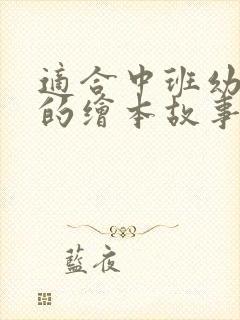 適合中班幼
的繪本故事
藍夜